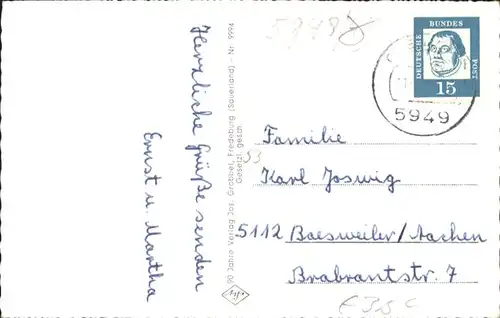 Herzliche Grüße senden
Ernst u. Martha
90 Jahre Verlag Jos. Grobbel, Fredeburg (Sauerland) - Nr. 9994
Gesetzl. gesch.
5949
DEUTSCHE
BUNDES
POST
15
5949
Familie
Karl Joswig
5112 Baesweiler/Aachen
Brabrantstr. 7